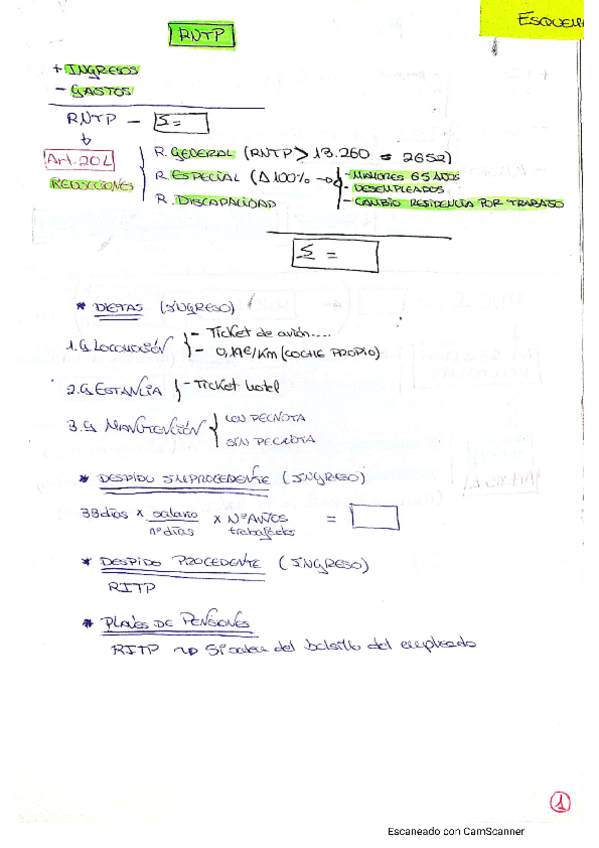 ESQUEM
RNTP
+ INGRESOS
- GASTOS
RNTP - Σ =
Art. 20 L
REDUCCIONES
R. GENERAL (RNTP > 13.260 = 2652)
R. ESPECIAL (Δ 100% →
- MAYORES 65 AÑOS
- DESEMPLEADOS
- CAMBIO RESIDENCIA POR TRABAJO
R. DISCAPACIDAD
Σ =
* DIETAS (INGRESO)
1. G. LOCOMOCIÓN
- Ticket de avión....
- 0,19€/Km (COCHE PROPIO)
2. G. ESTANCIA
- Ticket hotel
3. G. MANUTENCIÓN
CON PECNOTA
SIN PECNOTA
* DESPIDO IMPROCEDENTE (INGRESO)
33 días x salario / nº días x Nº AÑOS trabajados =
* DESPIDO PROCEDENTE (INGRESO)
RITP
* PLANES DE PENSIONES
RITP → Si salen del bolsillo del empleado
1
Escaneado con CamScanner